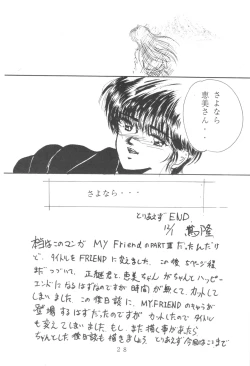 さよなら
恵美さん・・
さよなら・・・
とりあえずEND.
本当はこのマンガ MY FriendのPARTⅢだったんだけ
ど、タイトルをFRIENDに変えました。この後5ページ程
まだつづいて、正樹君と恵美ちゃんがちゃんとハッピー
エンドになるはずなのですが時間が無くて、カットして
しまいました。この後日談に、MY.FRIENDのキャラが
登場するはずだったのですがカットしたのでタイトル
も変えてしまいました。もし、また描く事があったら
ちゃんとした後日談も描きましょう とりあえず今回はここまで
28